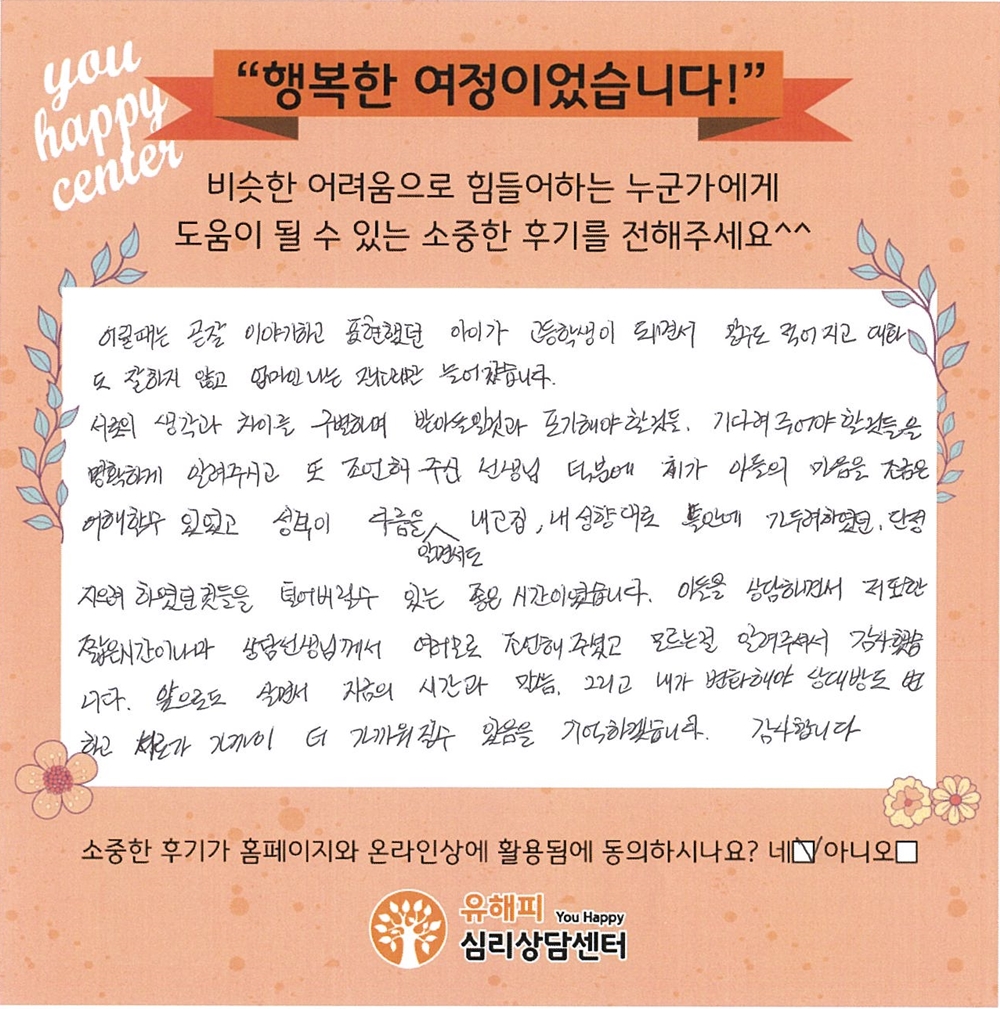 you
happy
center
“행복한 여정이었습니다!”
비슷한 어려움으로 힘들어하는 누군가에게
도움이 될 수 있는 소중한 후기를 전해주세요^^
어릴때는 곧잘 이야기하고 표현했던 아이가 고등학생이 되면서 말수도 적어지고 대화
도 잘하지 않고 엄마인 나는 잔소리만 늘어갔습니다.
서로의 생각과 차이를 구별하며 받아들일것과 포기해야할것들, 기다려주어야할것들을
명확하게 알려주시고 또 조언해 주신 선생님 덕분에 제가 아들의 마음을 조금은
이해할수 있었고 성묵이 다름을 내고집, 내 성향대로 틀안에 가두려하였던, 단정
알면서도
지으려 하였던것들을 털어버릴수 있는 좋은 시간이었습니다. 아들을 상담하면서 저또한
짧은시간이나마 상담선생님께서 여러모로 조언해 주셨고 모르는걸 알려주셔서 감사했습
니다. 앞으로도 살면서 지금의 시간과 말씀, 그리고 내가 변화해야 상대방도 변
하고 서로가 가까이 더 가까워질수 있음을 기억하겠습니다. 감사합니다
소중한 후기가 홈페이지와 온라인상에 활용됨에 동의하시나요? 네☑/아니오□
유해피 You Happy
심리상담센터